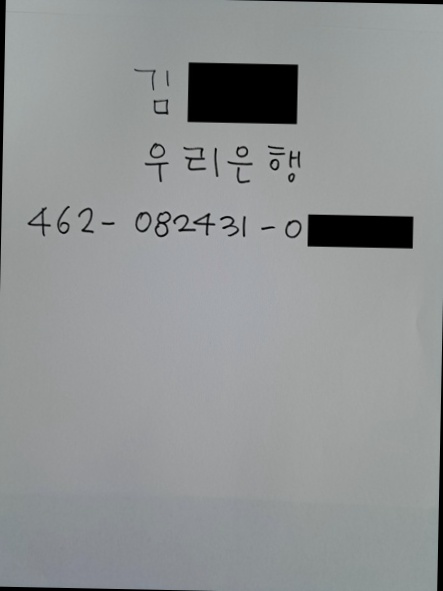 김
우리은행
462- 082431 - 0